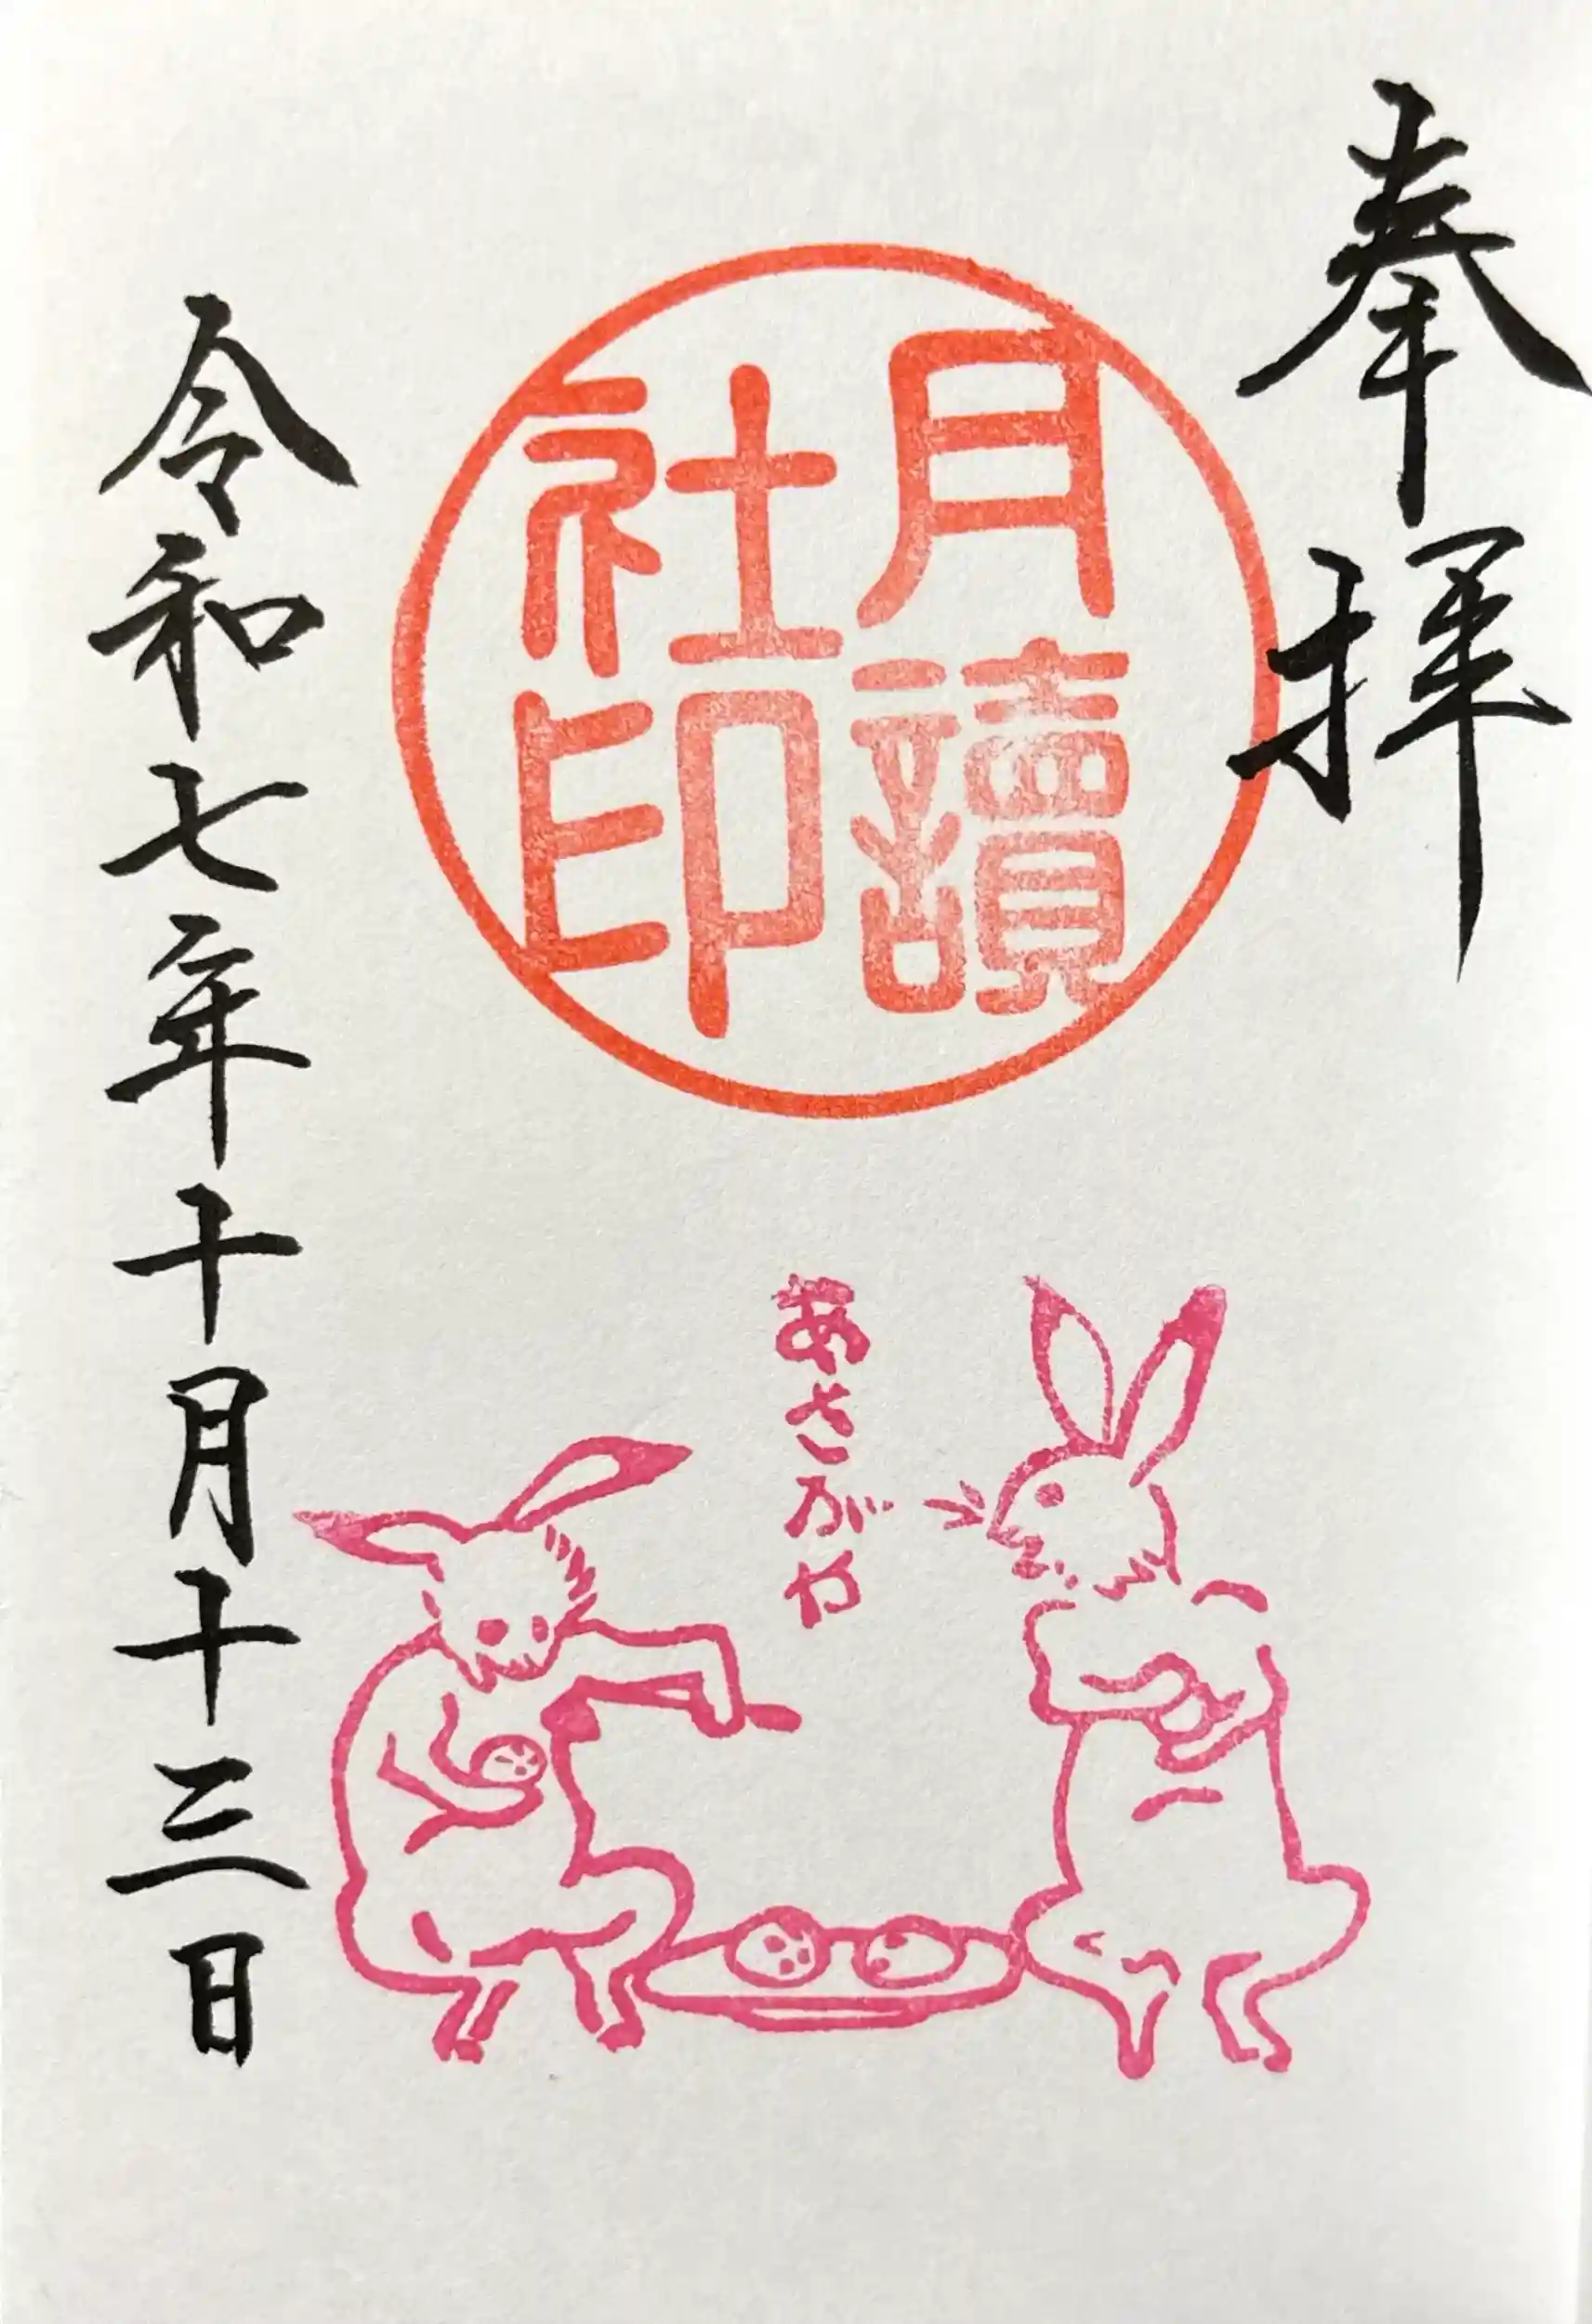 奉拝
月讀
社印
あさがや
令和七年十月十三日